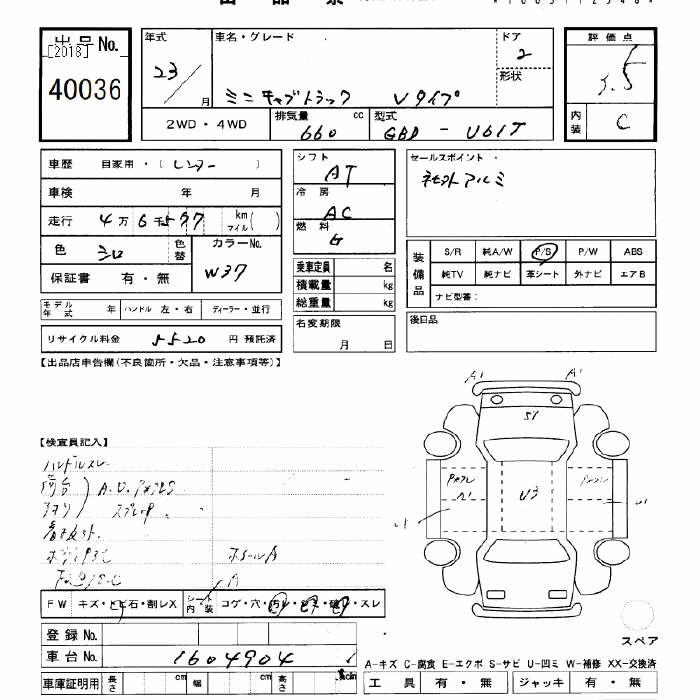 出品No.
[2018]
40036
年式
23/
月
車名・グレード
ミニキャブトラック Vタイプ
ドア
2
形状
評価点
3.5
内装
C
2WD・4WD
排気量
660
cc
型式
GBD - U61T
車歴
自家用・(レンター)
車検
年 月
走行
4万6千577
km
マイル( )
色
シロ
色替
カラーNo.
W37
保証書
有・無
モデル年式
年
ハンドル
左・右
ディーラー・並行
リサイクル料金
5520
円 預託済
シフト
AT
冷房
AC
燃料
G
乗車定員
名
積載量
kg
総重量
kg
名変期限
月 日
セールスポイント・
装備品
S/R 純A/W P/S P/W ABS
純TV 純ナビ 革シート 外ナビ エアB
ナビ型番:
後日品
【出品店申告欄(不良箇所・欠品・注意事項等)】
【検査員記入】
ハンドルスレ
荷台
アオリ
A.U.
ホールA
A
A1 A1
S1
U3
FW
キズ・トビ石・割レX
シート・内装
コゲ・穴・汚レ・シミ・破レ・スレ
登録No.
車台No.
1604904
車庫証明用
長さ
cm
幅
cm
高さ
cm
スペア
A-キズ C-腐食 E-エクボ S-サビ U-凹ミ W-補修 XX-交換済
工具
有・無
ジャッキ
有・無